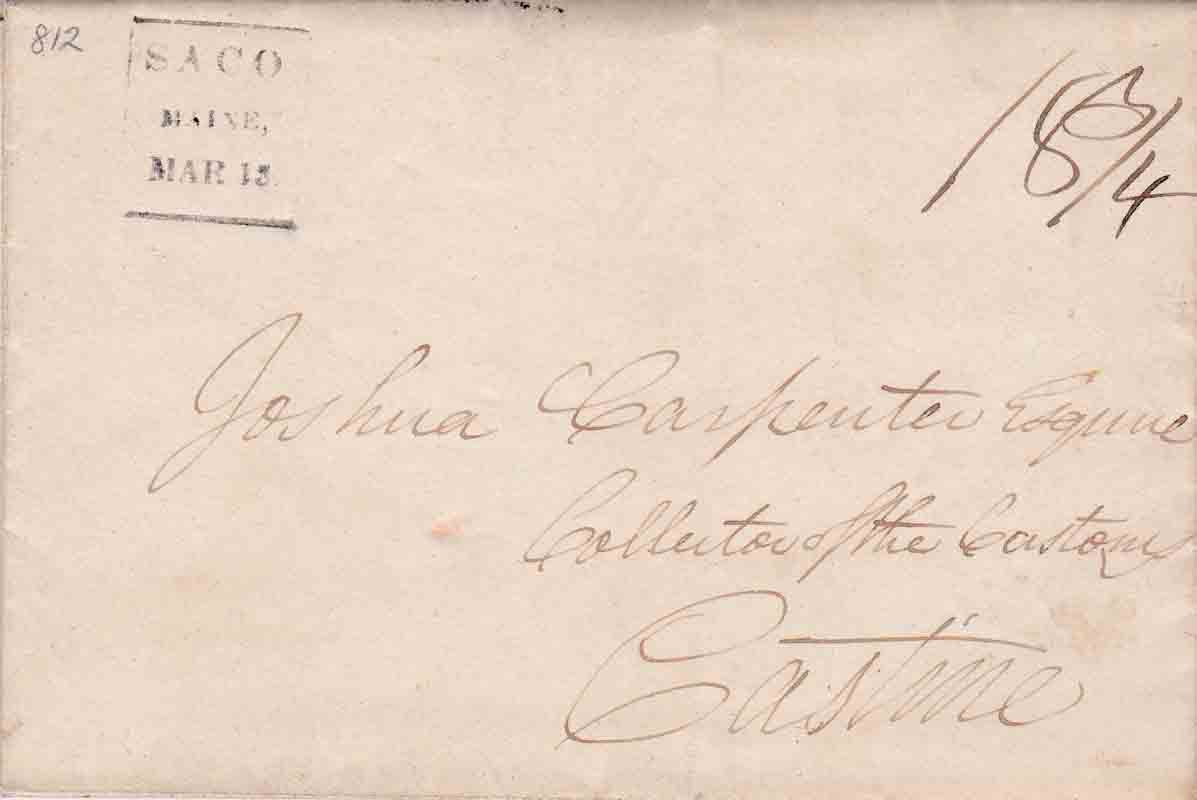 812
SACO
MAINE,
MAR 15.
18 3/4
Joshua Carpenter Esquire
Collector of the Customs
Castine